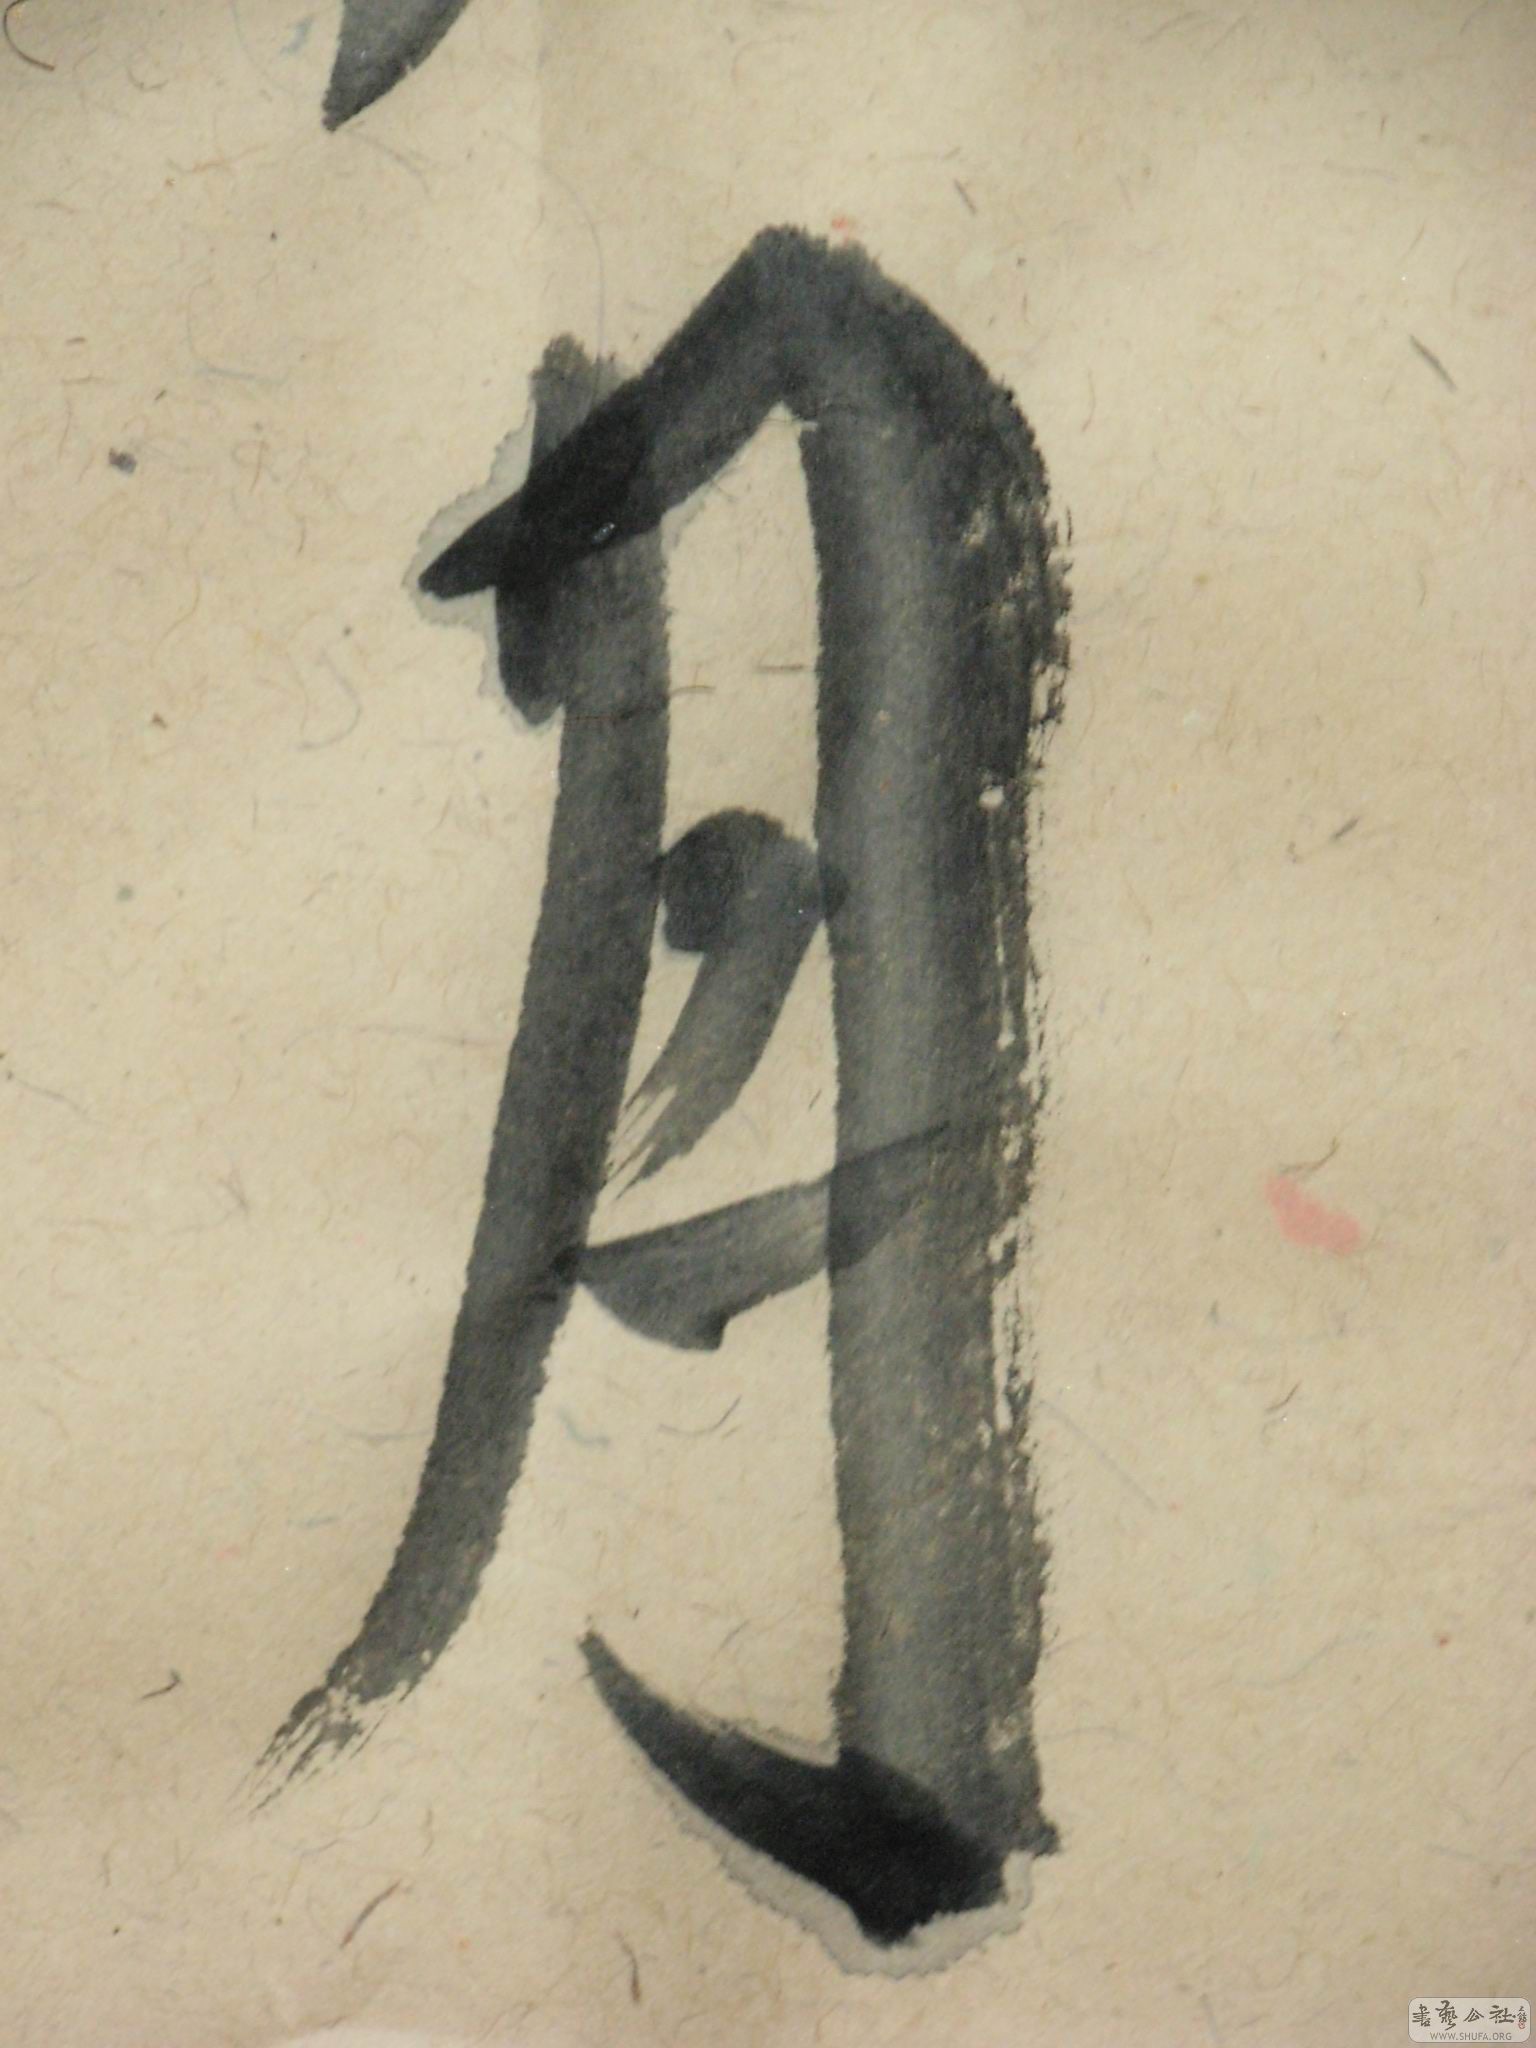 月
書藝公社
WWW.SHUFA.ORG